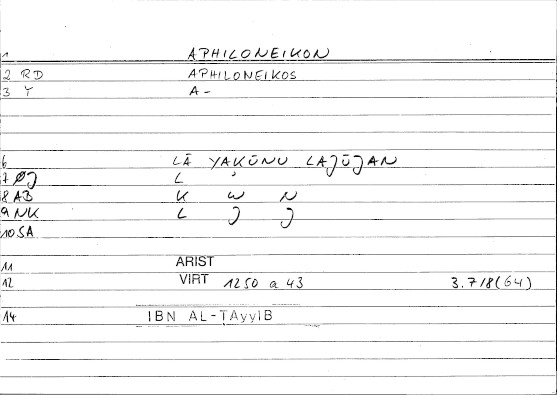 1 APHILONEIKON
2 RD APHILONEIKOS
3 Y A-
6 LĀ YAKŪNU LAJŪJAN
7 ØJ L ʾ
8 AB K W N
9 NK L J J
10 SA
11 ARIST
12 VIRT 1250 a 43 3.718(64)
14 IBN AL-ṬAyyIB